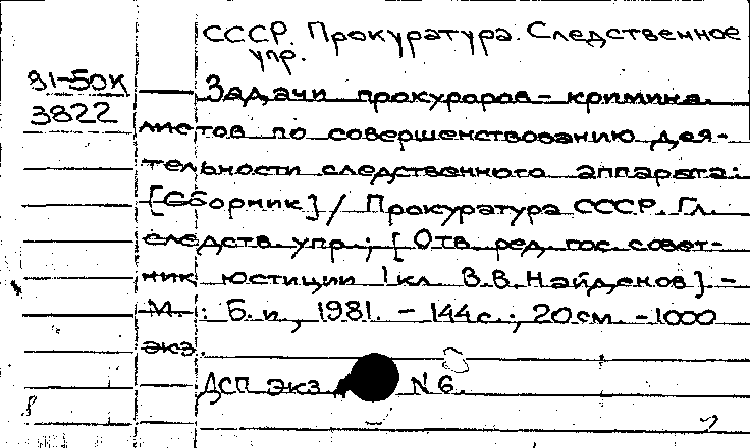 СССР. Прокуратура. Следственное
упр.
81-50К
3822
Задачи прокуроров-кримина-
листов по совершенствованию дея-
тельности следственного аппарата:
[Сборник] / Прокуратура СССР. Гл.
следств. упр.; [Отв. ред. гос. совет-
ник юстиции 1 кл. В.В. Найденов]. -
М.: Б. и., 1981. - 144 с.; 20 см. - 1000
экз.
ДСП экз. N 6.